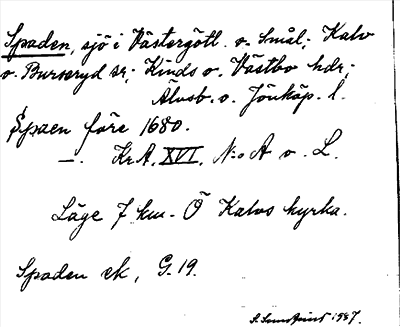 Spaden, sjö i Västergötl. o. Smål; Kalv
o. Burseryd sn; Kinds o. Västbo hdr;
Älvsb. o. Jönköp. l.
Spaen före 1680.
—. KrA. XVI. N:o A o. L.
Läge 7 km. Ö Kalvs kyrka.
Spaden ek, G. 19.
1937.